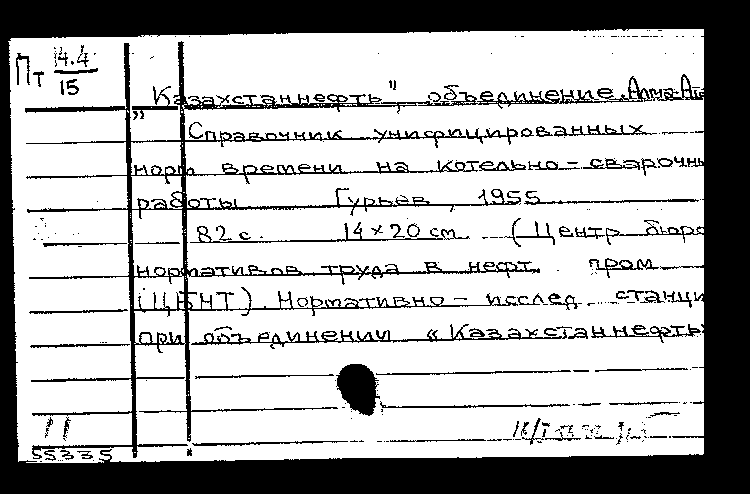 Пт 14.4
15
„Казахстаннефть", объединение. Алма-Ата
Справочник унифицированных
норм времени на котельно-сварочн
работы Гурьев, 1955
82 с. 14×20 см. (Центр бюро
нормативов труда в нефт. пром
(ЦБНТ). Нормативно-исслед. станци
при объединении «Казахстаннефть»
11
55335